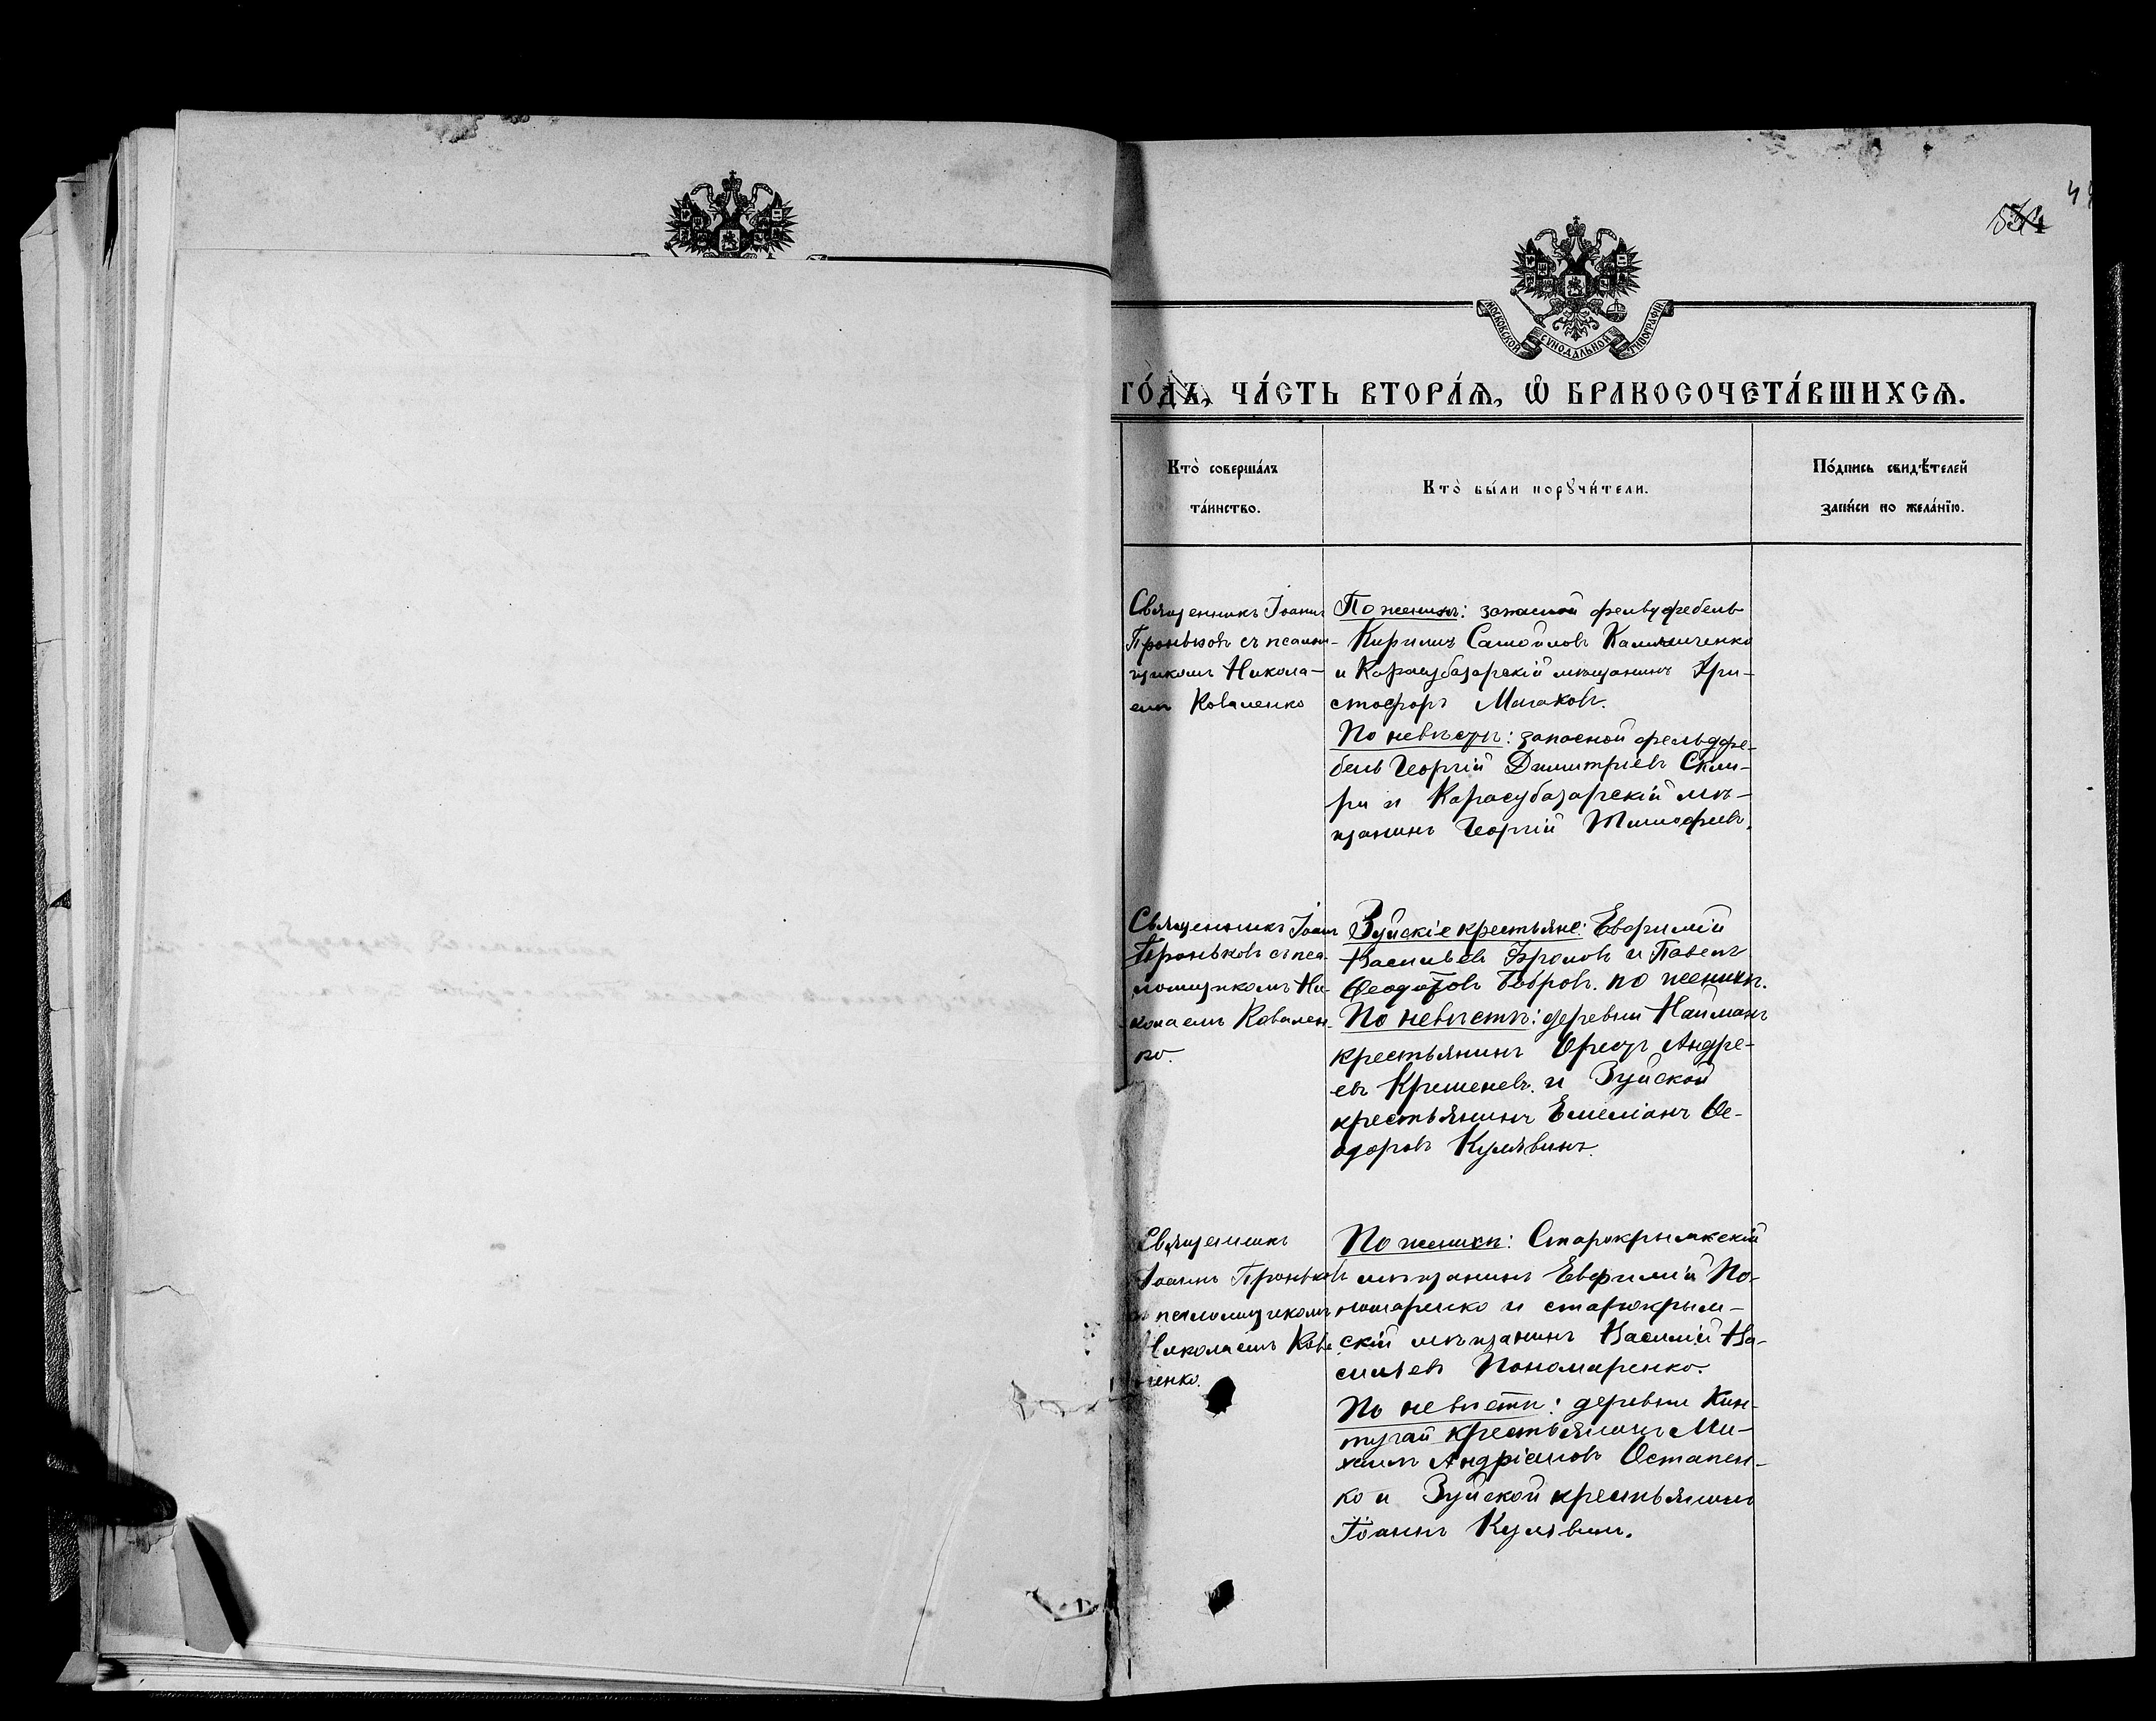 МОСКОВСКОЙ СѴНОДАЛЬНОЙ ТИПОГРАФІИ
ГО́ДЪ, ЧА́СТЬ ВТОРА́Ѧ, Ѽ БРАКОСОЧЕТА́ВШИХСѦ.
Кто̀ соверша́лъ
та́инство.
Кто̀ бы́ли порꙋчи́тели.
По́дпись свидѣ́телей
запи́си по жела́нїю.
Священникъ Іоаннъ
Проньковъ съ псалом-
щикомъ Никола-
емъ Коваленко
По женихѣ: запасной фельдфебель
Кириллъ Самойловъ
и Карасубазарскій мѣщанинъ Хри-
стофоръ
По невѣстѣ: запасной фельдфе-
бель Георгій Димитріевъ Скля-
ри и Карасубазарскій мѣ-
щанинъ Георгій Тимофеевъ.
Священникъ Іоаннъ
Проньковъ съ пса-
ломщикомъ Ни-
колаемъ Ковален-
ко.
Зуйскіе крестьяне: Евфимій
Васильевъ Фроловъ и Павелъ
Ѳеодотовъ Бобровъ. по женихѣ.
По невѣстѣ: деревни Найманъ
крестьянинъ Орестъ Андре-
евъ и Зуйской
крестьянинъ Емеліанъ Ѳе-
одоровъ Кулявинъ.
Священникъ
Іоаннъ Проньковъ
съ псаломщикомъ
Николаемъ Кова
ленко.
По женихѣ: Старокрымскій
мѣщанинъ Евфимій По-
номаренко и старокрым-
скій мѣщанинъ Василій Ва-
сильевъ Пономаренко.
По невѣстѣ: деревни Кин-
тугай крестьянинъ Ми-
хаилъ Андріановъ Остапен-
ко и Зуйской крестьянинъ
Іоаннъ Кулявин.